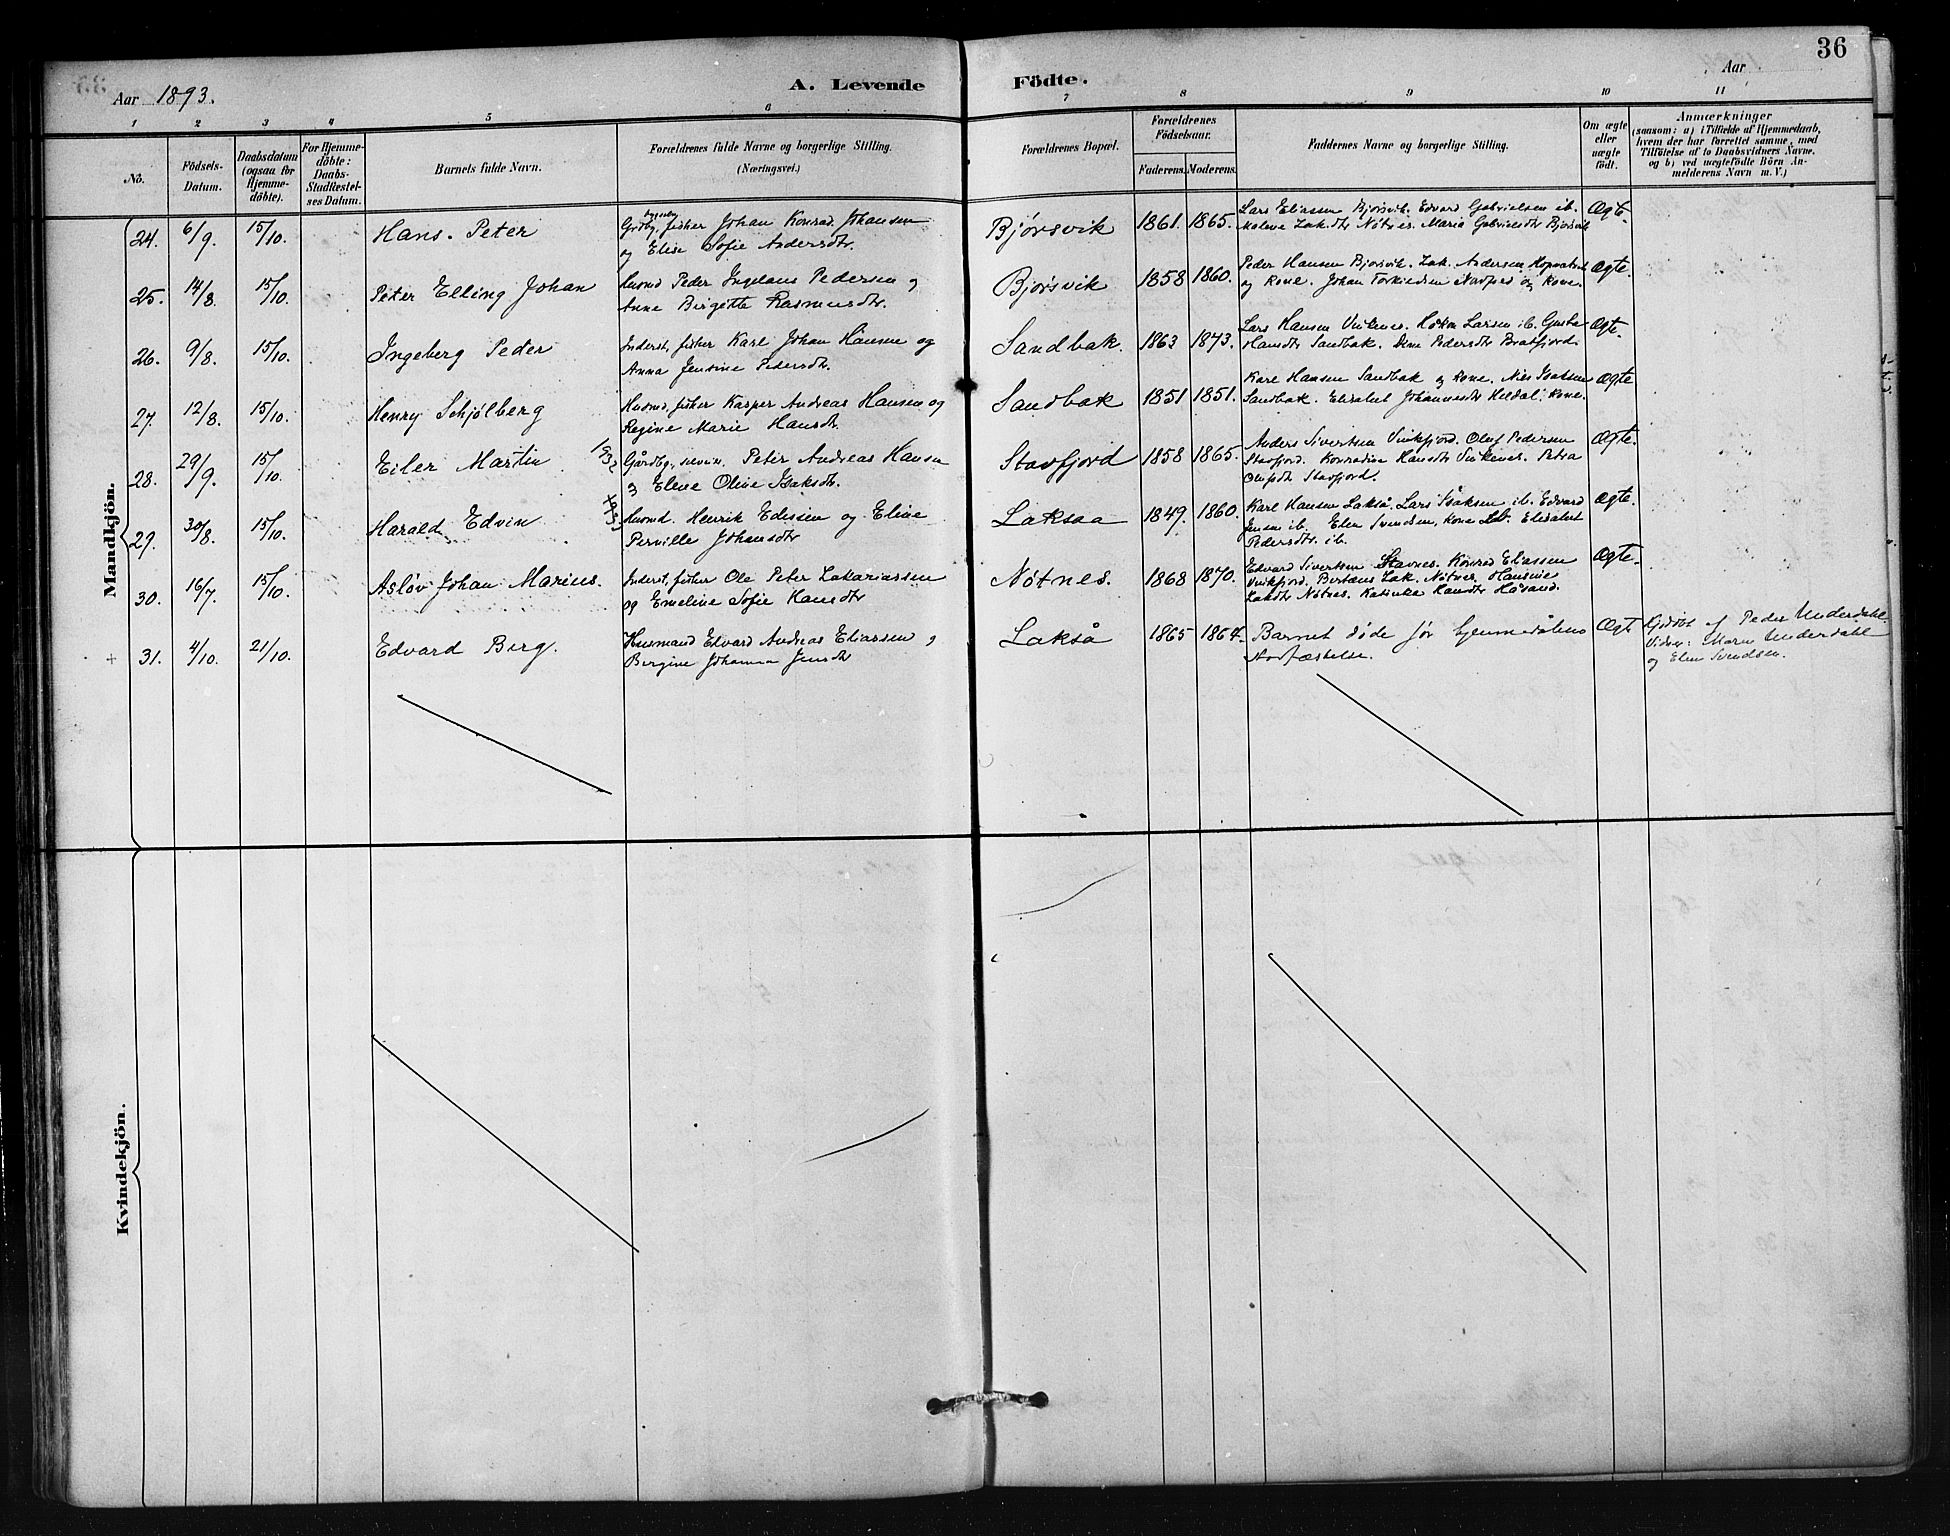 36
Aar 1893.
A. Levende Födte.
Aar
1 2 3 4 5 6 7 8 9 10 11
No.
Födsels-Datum.
Daabsdatum (ogsaa for Hjemme-döbte).
For Hjemme-döbte: Daabs-Stadfæstel-ses Datum.
Barnets fulde Navn.
Forældrenes fulde Navne og borgerlige Stilling.
(Næringsvei.)
Forældrenes Bopæl.
Forældrenes Födselsaar.
Faderens. Moderens.
Faddernes Navne og borgerlige Stilling.
Om ægte eller uægte födt.
Anmærkninger
(saasom: a) i Tilfælde af Hjemmedaab,
hvem der har forrettet samme, med
Tilföielse af to Daabsvidners Navne.
og b) ved uægtefödte Börn An-
melderens Navn m. V.)
Mandkjön.
24. 6/9. 15/10. Hans. Peter
fisher Johan Konrad Johansen
og Elise Sofie Andersdtr.
Bjørsvik 1861. 1865.
Lars Eliassen Bjørsvik. Edvard Gabrielsen ib.
Malene Zak.dtr Nøtnes. Maria Gabrielsdtr Bjørsvik
Ægte.
25. 14/8. 15/10. Peter Elling Johan
Husmd Peder Ingelaus Pedersen og
Anne Birgitte Rasmusdtr.
Bjørsvik 1858 1860.
Peder Hansen Bjørsvik. Zak. Andersen
og Kone. Johan Torkildsen og Kone.
Ægte.
26. 9/8. 15/10. Ingeberg Peder
Inderst, fisher Karl Johan Hansen og
Anna Jensine Pedersdtr.
Sandbak. 1863 1873.
Lars Hansen Vinkenes. Håkon Larsen ib.
Hansdtr Sandbak. Dina Pedersdtr Bratfjord.
Ægte.
27. 12/8. 15/10. Henry Schjølberg
Husmd, fisher Kasper Andreas Hansen og
Regine Marie Hansdtr.
Sandbak 1851 1851.
Karl Hansen Sandbak og Kone. Nils Isaksen
Sandbak. Elisabet Johannesdtr Heldal, Kone.
Ægte
28. 29/9. 15/10. Eiler Martin
Gårdbg, Peter Andreas Hansen
og Elene Oline Isaksdtr.
Stavfjord 1858 1865.
Anders Sivertsen Vinkfjord. Oluf Pedersen
Stavfjord. Konradine Hansdtr Vinkenes. Petra
Olufsdtr Stavfjord.
Ægte.
29. 30/8. 15/10. Harald Edvin
Husmd. Henrik Edisen og Eline
Pernille Johansdtr
Laksaa 1849. 1860.
Karl Hansen Lakså. Lars Isaksen ib. Edvard
Jensen ib. Elen Svendsen, Kone ib. Elisabet
Pedersdtr. ib.
Ægte.
30. 16/7. 15/10. Asløv Johan Marius.
Inderst, fisher Ole Peter Zakariassen
og Emeline Sofie Hansdtr
Nøtnes. 1868 1870.
Edvard Sivertsen Stavnes. Konrad Eliassen
Vinkfjord. Zak. Nøtnes. Hansine
Zakdtr Nøtnes. Katinka Hansdtr Håsand.
Ægte.
+ 31. 4/10. 21/10. Edvard Berg.
Husmand Edvard Andreas Eliassen og
Bergine Johanna Jensdtr
Lakså 1865 1864.
Barnet døde før Hjemmedåbens
Stadfæstelse.
Ægt
Gjdøbt af Peder Underdahl
Vidner: Maren Underdahl
og Elen Svendsen.
Kvindekjön.